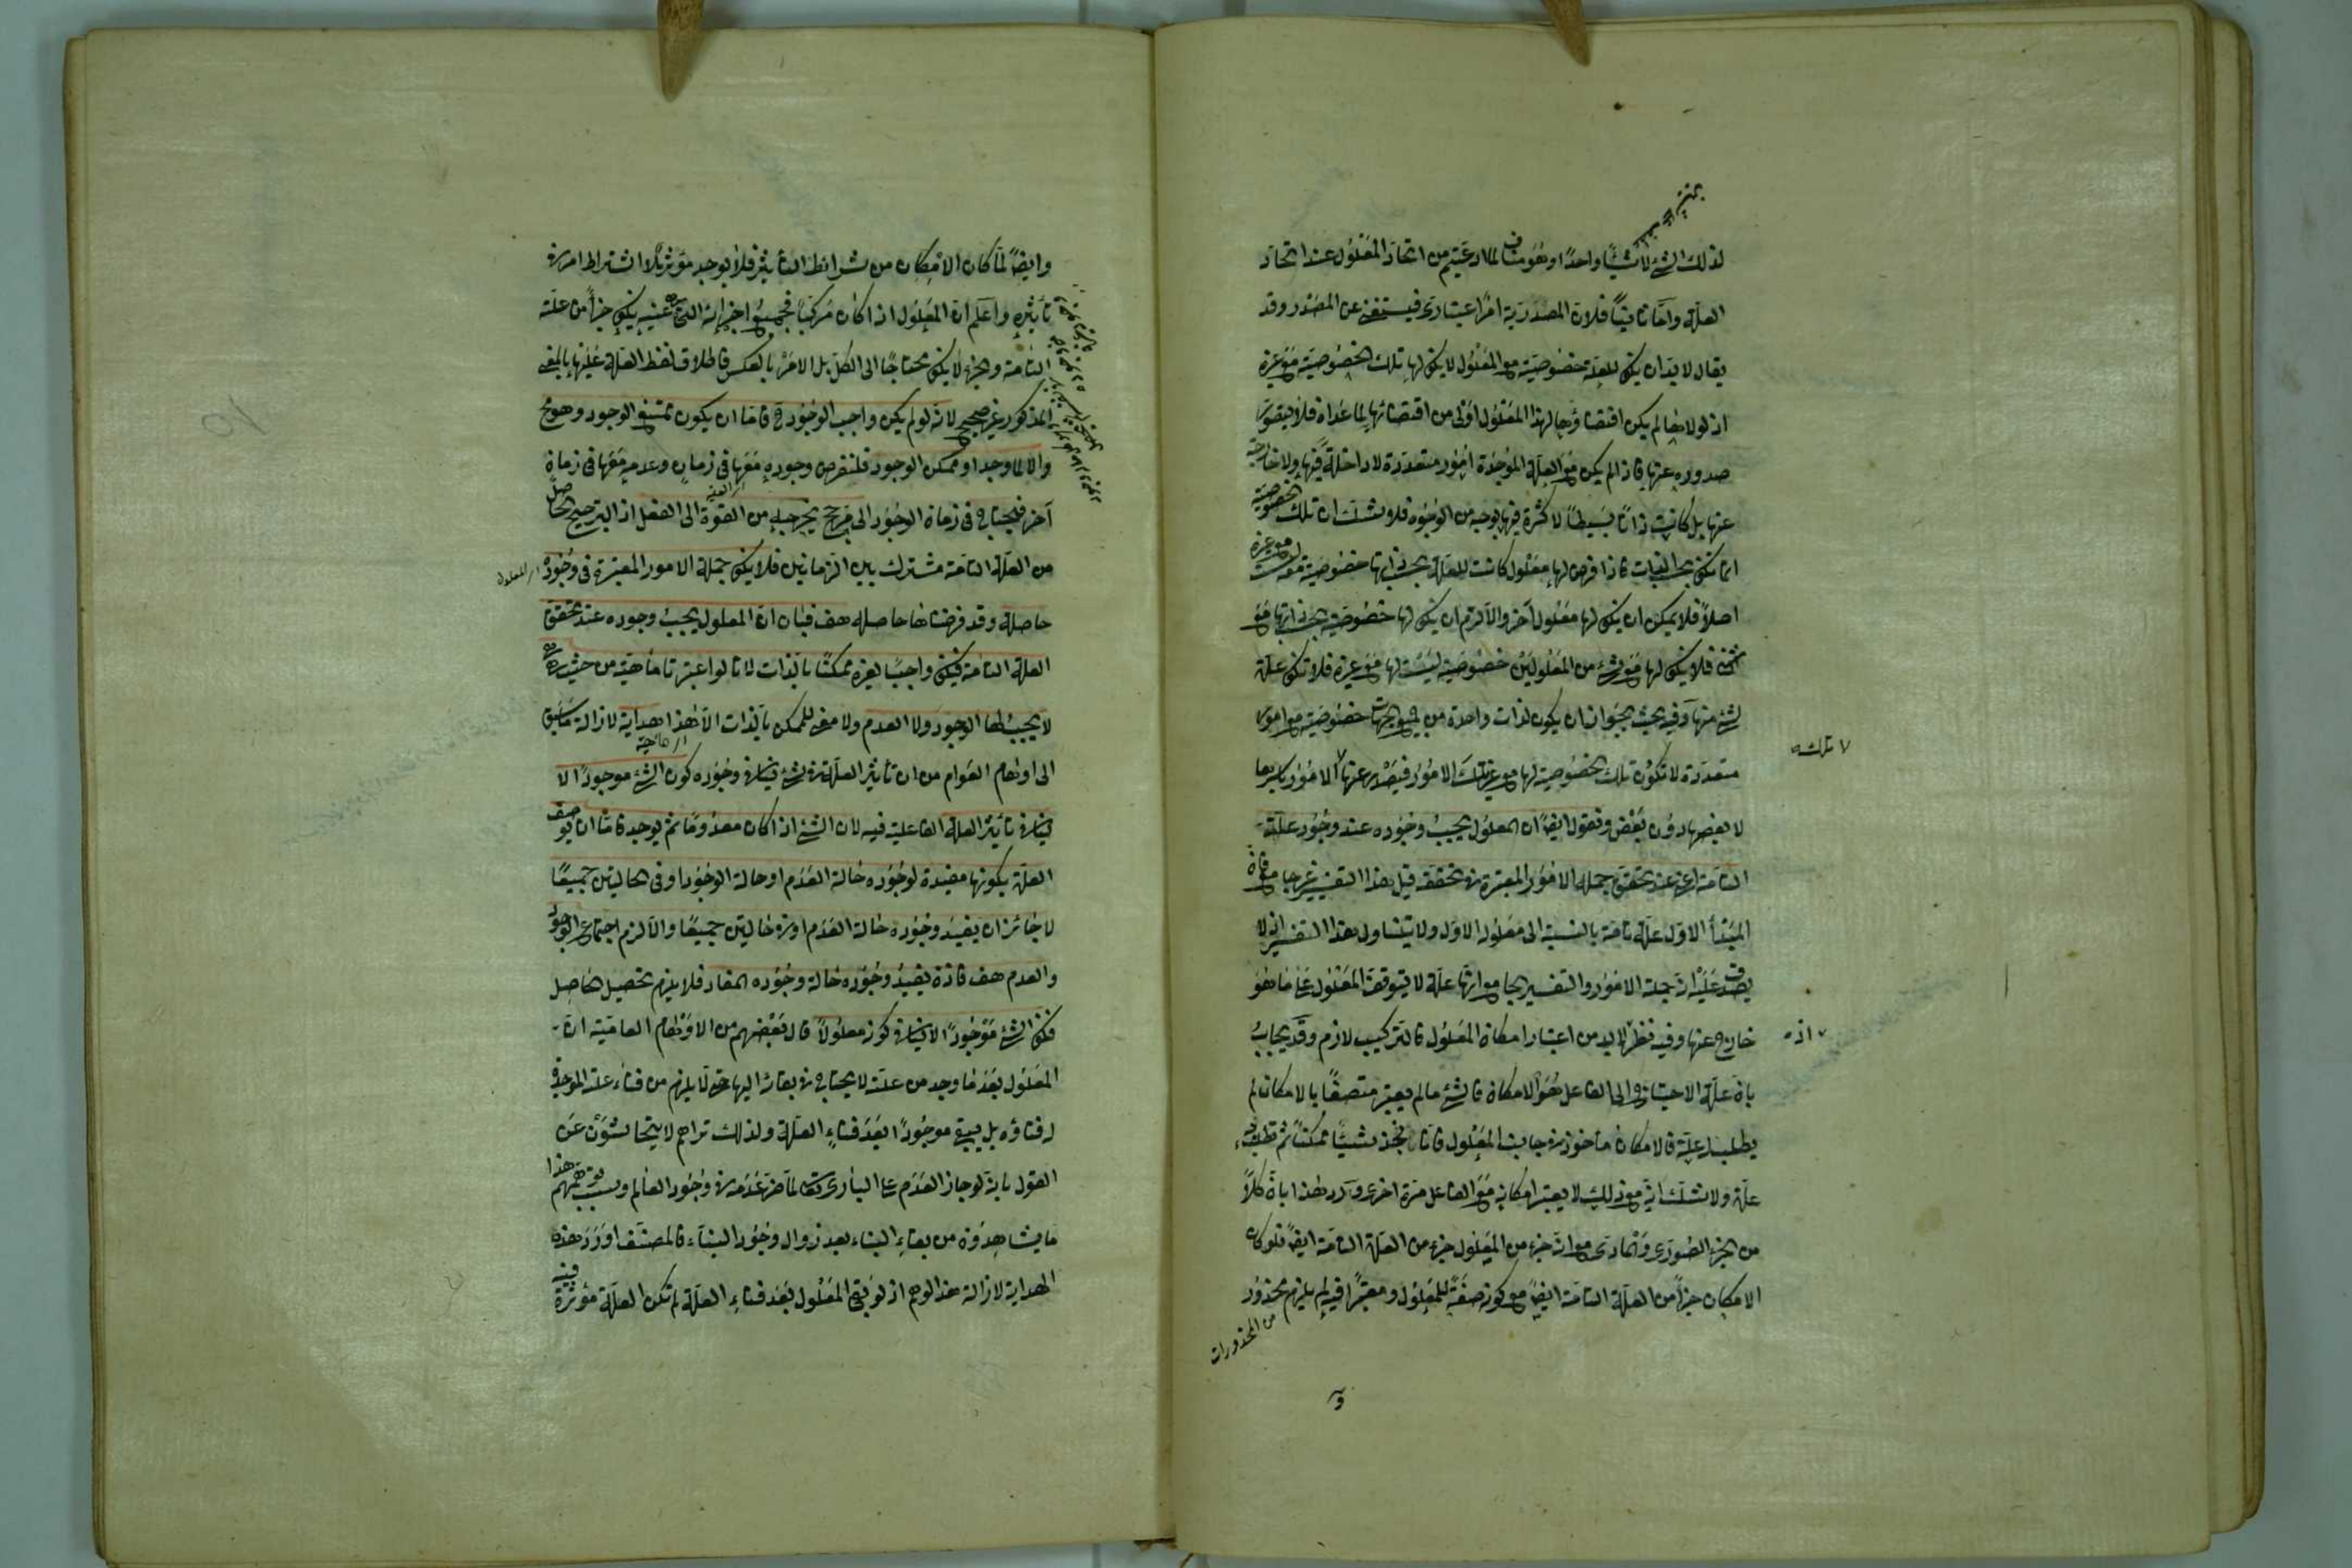 لذلك الشئ لا شيئا واحدا وهو مناف لما ادعيتم من اتحاد المعلول عند اتحاد
العلة واما ثانيا فلان المصدرية امر اعتبارى فيستغنى عن المصدر وقد
يقال لا بد ان يكون للعلة خصوصية مع المعلول لا يكون لها تلك الخصوصية مع غيره
اذ لولاها لم يكن اقتضاؤها لهذا المعلول اولى من اقتضائها لما عداه فلا يتصور
صدوره عنها فاذا لم يكن مع العلة الموجدة امور متعددة لا داخلة فيها ولا خارجة
عنها بل كانت ذاتا بسيطا لا كثرة فيها بوجه من الوجوه فلا شك ان تلك الخصوصية
انما تكون بحسب الذات فاذا فرض لها معلول كانت للعلة بحسب ذاتها خصوصية معه ليست مع غيره
اصلا فلا يمكن ان يكون لها معلول آخر والا لزم ان يكون لها خصوصية بحسب ذاتها مع
فلا يكون لها مع شئ من المعلولين خصوصية ليست لها مع غيره فلا تكون علة
لشئ منها وفيه بحث لجواز ان يكون لذات واحدة من جميع الجهات خصوصية مع امور
متعددة لا تكون تلك الخصوصية لها مع غير تلك الامور فيصدر عنها الامور باسرها
تلك
لا بعضها دون بعض ونقول ايضا ان المعلول يجب وجوده عند وجود علته
التامة اعنى عند تحقق جملة الامور المعتبرة فى تحققه قيل هذا التفسير غير جامع فان
المبدأ الاول علة تامة بالنسبة الى معلوله الاول ولا يتناول هذا التفسير اذ لا
يصدق عليه انه جملة الامور والتفسير الجامع انها علة لا يتوقف المعلول على ما هو
خارج عنها وفيه نظر لا بد من اعتبار امكان المعلول فالتركيب لازم وقد يجاب
اذه
بان علة الاحتياج الى الفاعل هو الامكان فالشئ ما لم يعتبر متصفا بالامكان لم
يطلب له علة فالامكان مأخوذ فى جانب المعلول فانا نجد شيئا ممكنا ثم نطلب له
علة ولا شك انه مع ذلك لا يعتبر امكانه مع الفاعل مرة اخرى ورد هذا بان كلا
من الجزء الصورى والمادى مع انه جزء من المعلول جزء من العلة التامة ايضا فلو كان
الامكان جزأ من العلة التامة ايضا مع كونه صفة للمعلول ومعتبرا فيه لم يلزم محذور
من المحذورات
وايضا لما كان الامكان من شرائط التأثير فلا يوجد مؤثر بلا اشتراط امر فى
تأثيره واعلم ان المعلول اذا كان مركبا فجميع اجزائه التى هى عينه يكون جزأ من علته
التامة والجزء لا يكون محتاجا الى الكل بل الامر بالعكس فاطلاق لفظ العلة عليها بالمعنى
المذكور غير صحيح لانه لو لم يكن واجب الوجود ح فاما ان يكون ممتنع الوجود وهو مح
والا لما وجد او ممكن الوجود فلنفرض وجوده معها فى زمان وعدمه معها فى زمان
آخر فيحتاج فى زمان الوجود الى مرجح يخرجه من القوة الى الفعل اذ الترجيح الحاصل
من العلة التامة مشترك بين الزمانين فلا يكون جملة الامور المعتبرة فى وجوده
اى المعلول
حاصلة وقد فرضناها حاصلة هف فبان ان المعلول يجب وجوده عند تحقق
العلة التامة فيكون واجبا لغيره ممكنا بالذات لانا لو اعتبرنا ماهيته من حيث هى هى
لا يجب لها الوجود ولا العدم ولا معنى للممكن بالذات الا هذا هداية لازالة ما سبق
الى اوهام العوام من ان تأثير العلة فى الشئ ينافى وجوده كون الشئ موجودا لا
ينافى تأثير العلة الفاعلية فيه لان الشئ اذا كان معدوما ثم يوجد فاما ان توصف
العلة بكونها مفيدة لوجوده حالة العدم او حالة الوجود او فى الحالتين جميعا
لا جائز ان يفيد وجوده حالة العدم او فى حالتين جميعا والا لزم اجتماع الوجود
والعدم هف فاذن يفيد وجوده حالة وجوده المفاد فلا يلزم تحصيل الحاصل
فكون الشئ موجودا لا ينافى كونه معلولا قال بعضهم من الاوهام العامية ان
المعلول بعد ما وجد من علته لا يحتاج فى بقائه اليها حتى لا يلزم من فناء علته الموجدة
له فناؤه بل يبقى موجودا بعد فناء العلة ولذلك تراهم لا يتحاشون عن
القول بانه لو جاز العدم على البارى تعالى لما ضر عدمه فى وجود العالم وسبب توهمهم هذا
ما يشاهدونه من بقاء البناء بعد زوال وجود البناء فالمصنف اورد هذه
الهداية لازالة هذا الوهم اذ لو بقى المعلول بعد فناء العلة لم تكن العلة مؤثرة فيه